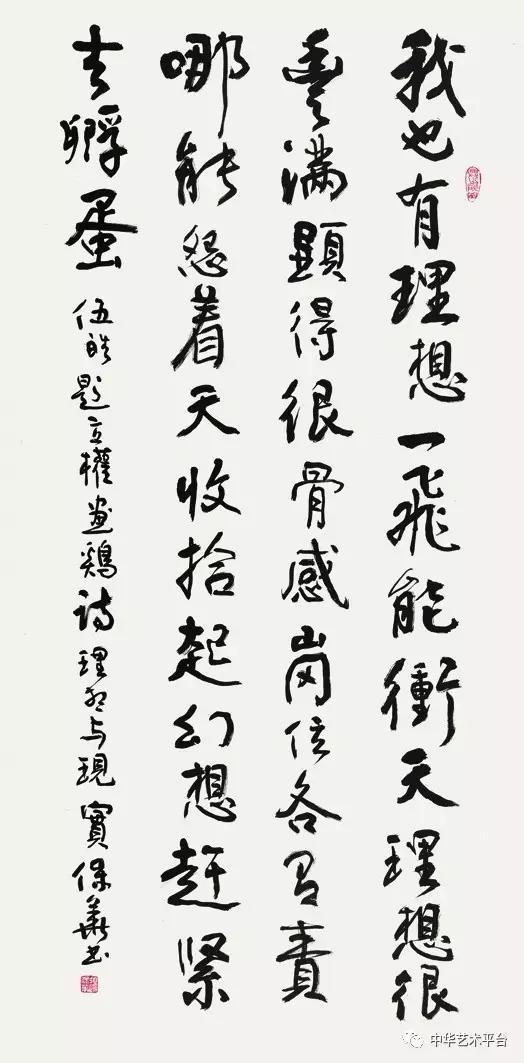 我也有理想一飛能衝天理想很
豐滿顯得很骨感崗位各有責
哪能怨着天收拾起幻想赶緊
去孵蛋 伍皓題立權畫鷄詩理想与現實保華書
中华艺术平台